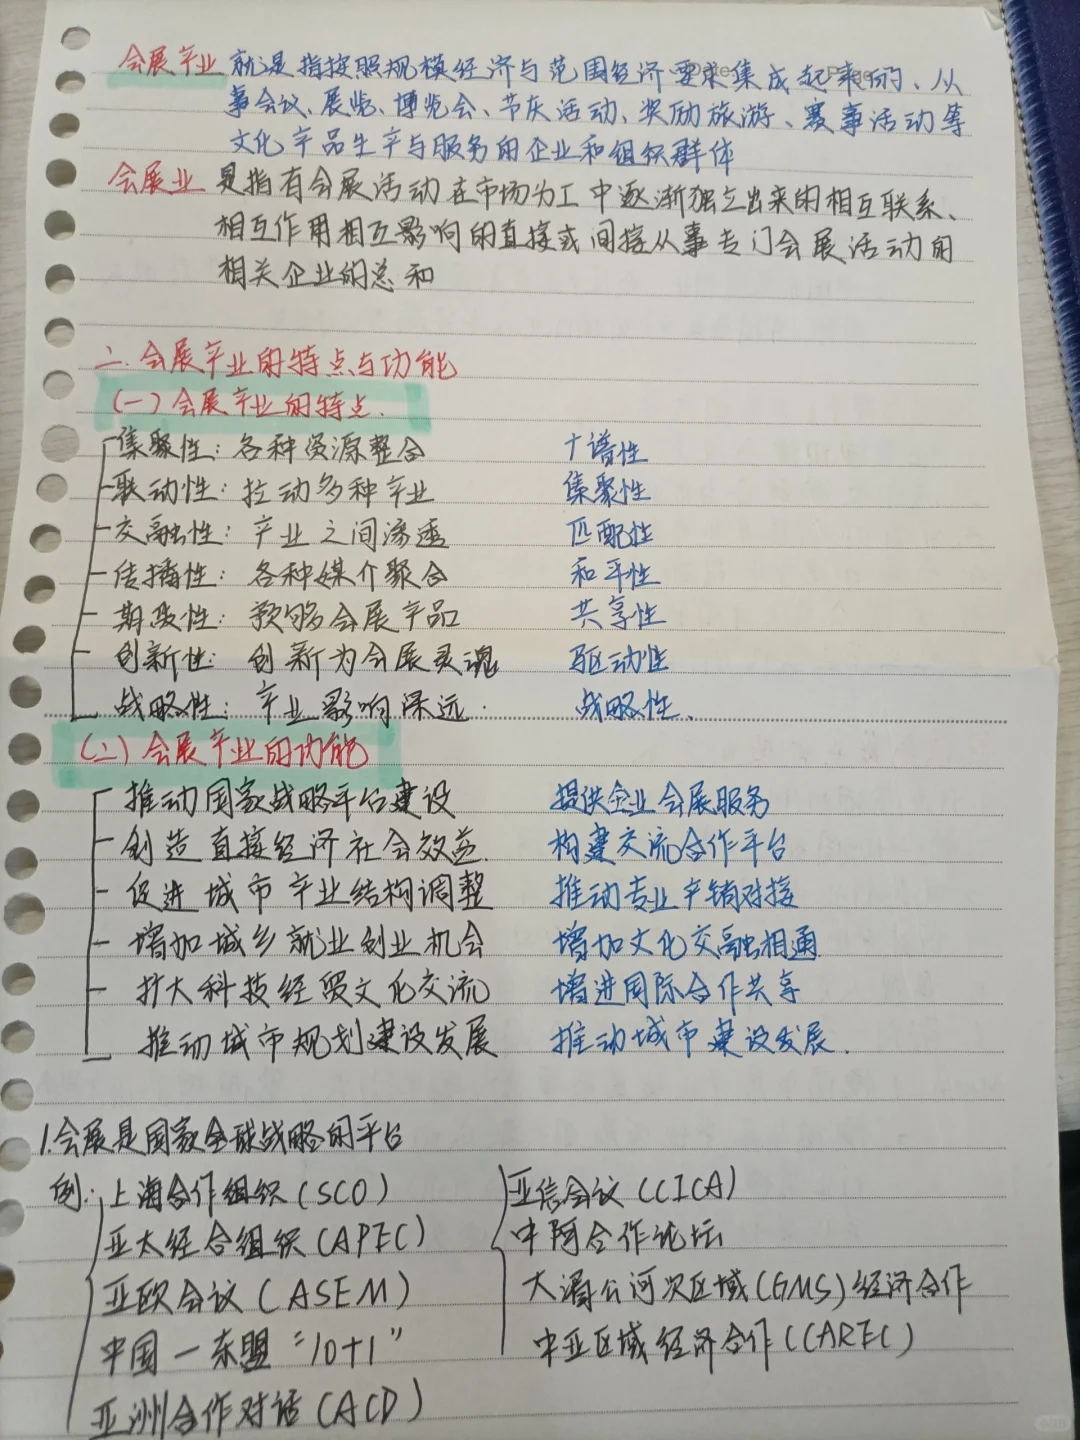 会展产业 就是指按照规模经济与范围经济要求集成起来的、从
事会议、展览、博览会、节庆活动、奖励旅游、赛事活动等
文化产品生产与服务的企业和组织群体
会展业 是指有会展活动在市场为工中逐渐独立出来的相互联系、
相互作用相互影响的直接或间接从事专门会展活动的
相关企业的总和
二.会展产业的特点与功能
(一)会展产业的特点.
集聚性:各种资源整合 十谱性
联动性:拉动多种产业 集聚性
交融性:产业之间渗透 匹配性
传播性:各种媒介聚合 和平性
期货性:预够会展产品 共享性
创新性:创新为会展灵魂 驱动性
战略性:产业影响深远. 战略性、
(二)会展产业的功能
推动国家战略平台建设 提供企业会展服务
创造直接经济社会效益. 构建交流合作平台
促进城市产业结构调整 推动专业产销对接
增加城乡就业创业机会 增加文化交融相通
扩大科技经贸文化交流 增进国际合作共享
推动城市规划建设发展 推动城市建设发展.
1.会展是国家全球战略的平台
例:上海合作组织(SCO) 亚信会议(CICA)
亚太经合组织(APEC) 中阿合作论坛
亚欧会议(ASEM) 大湄公河次区域(GMS)经济合作
中国一东盟"10+1" 中亚区域经济合作(CAREC)
亚洲合作对话(ACD)